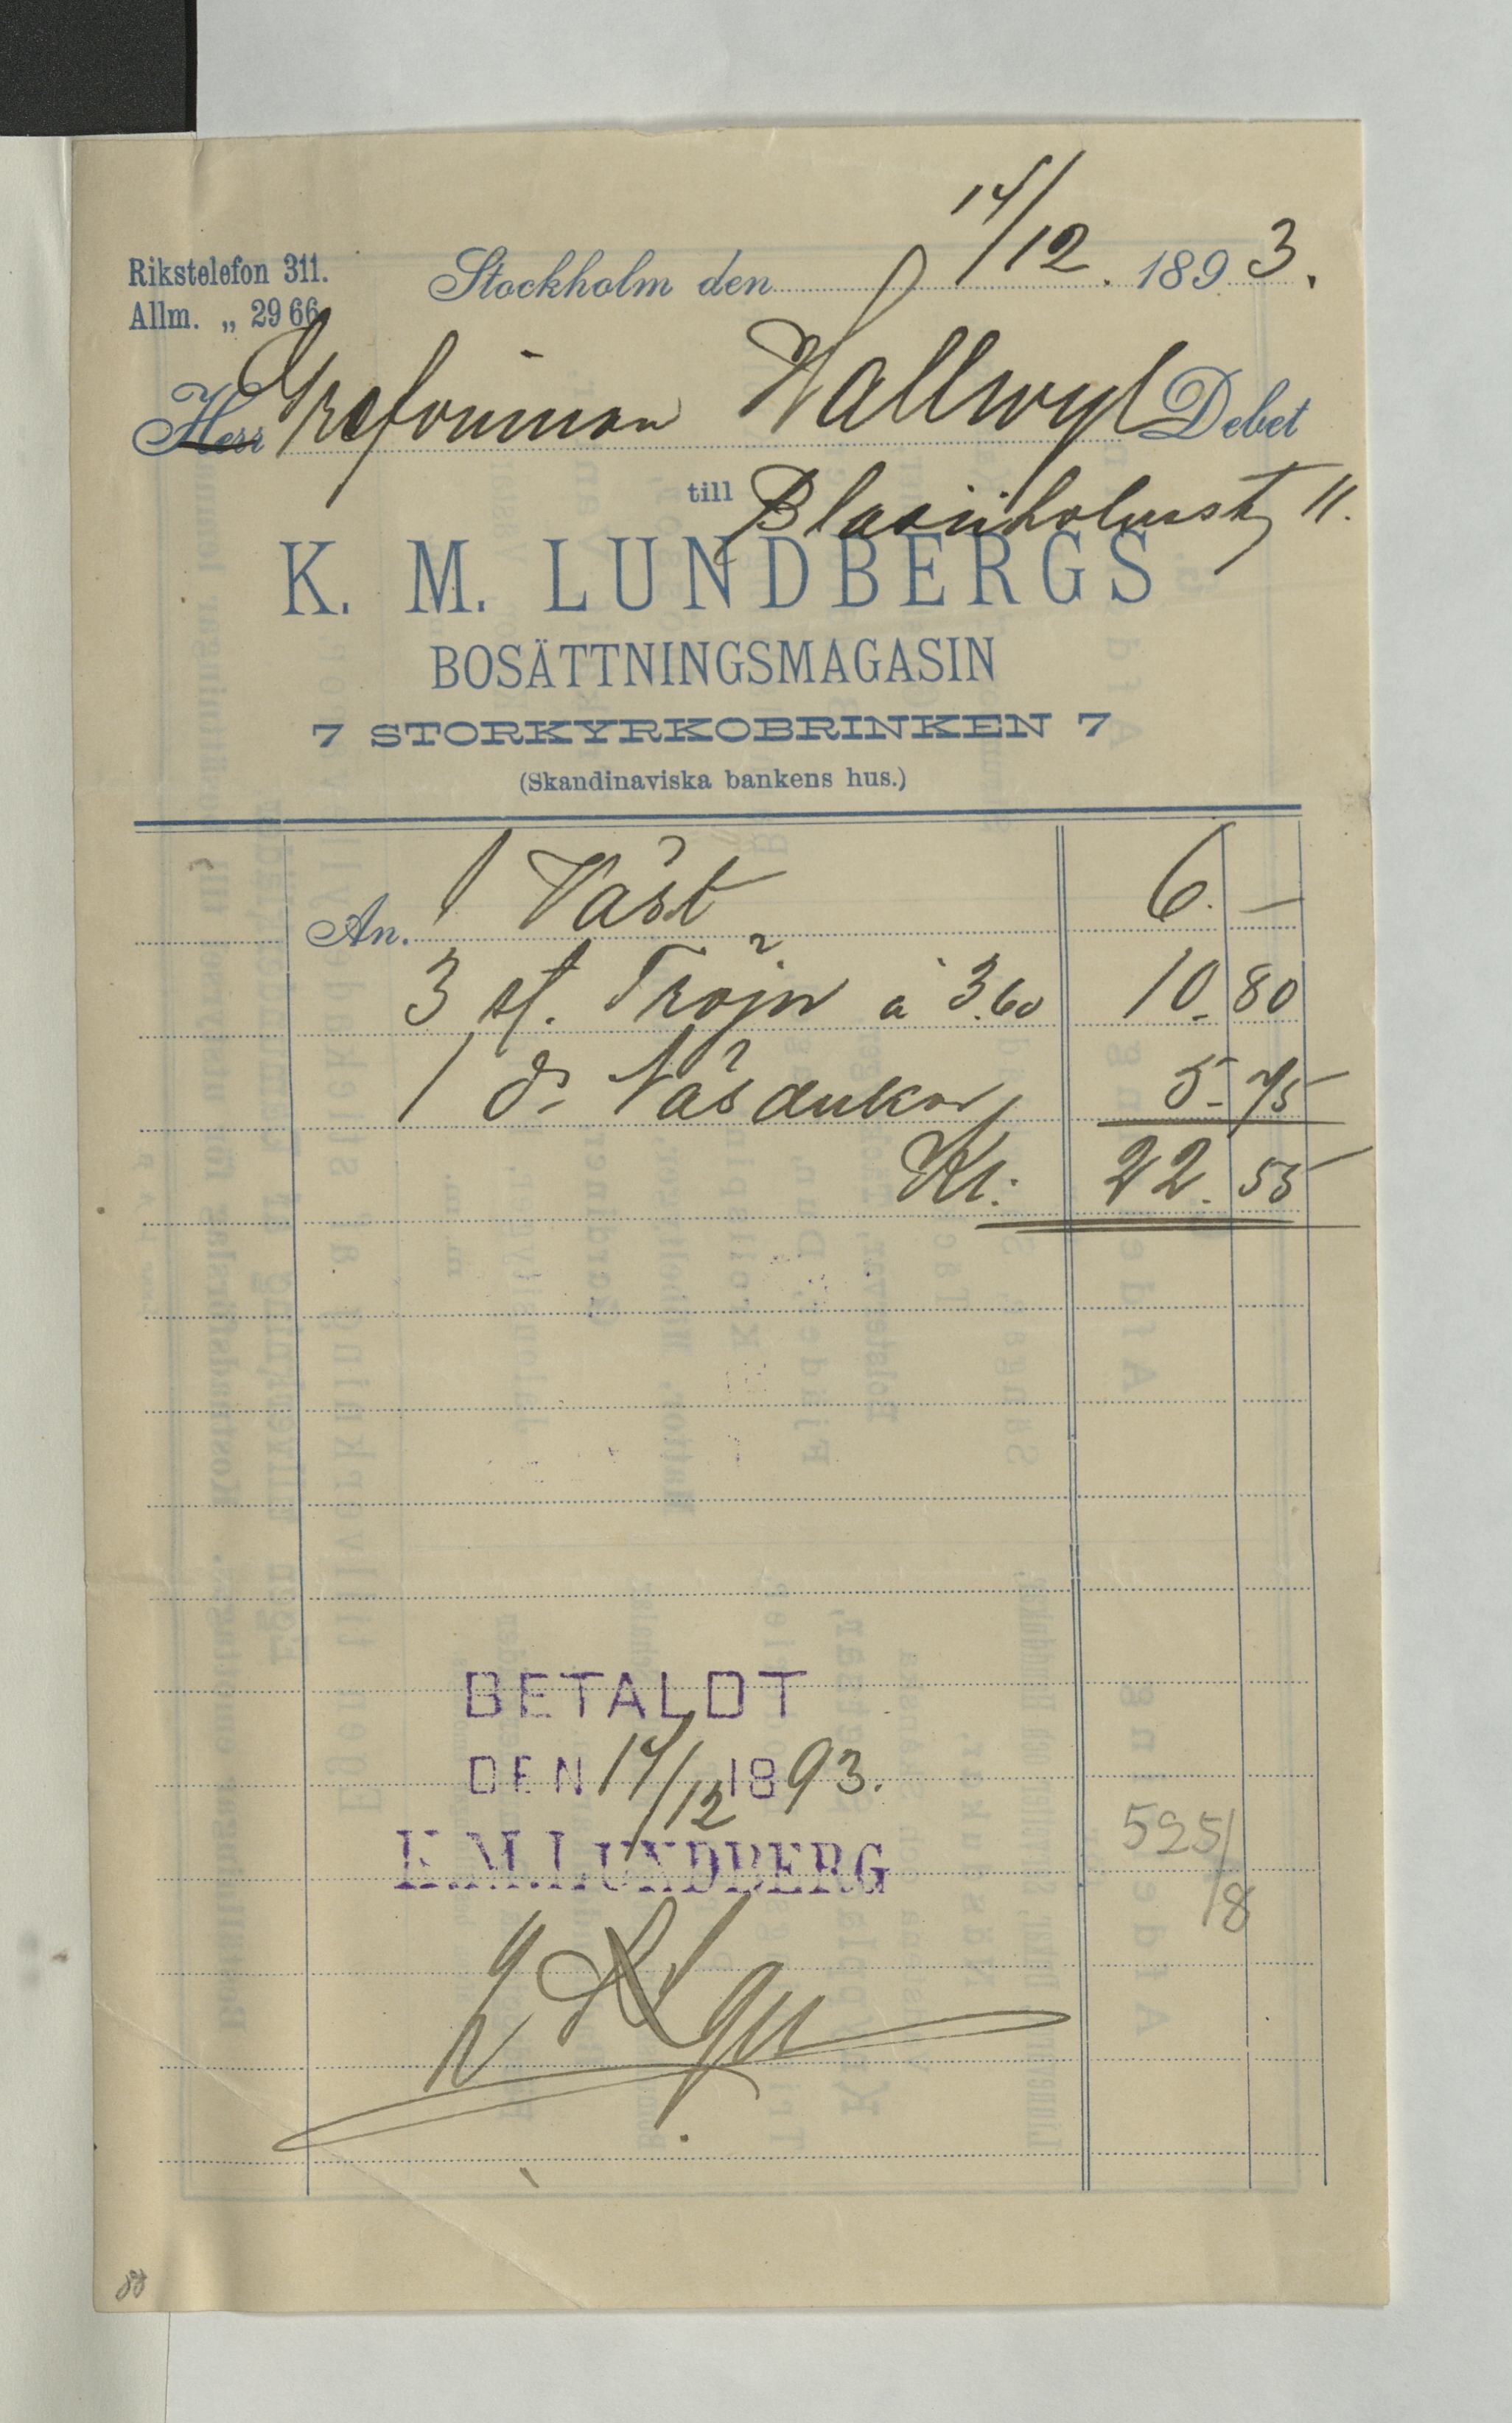 Rikstelefon 311.
Allm. „ 29 66
Stockholm den 14/12. 1893.
Herr Grefvinnan Hallwyl Debet
till Blasiiholmst 11.
K. M. LUNDBERGS
BOSÄTTNINGSMAGASIN
7 STORKYRKOBRINKEN 7
(Skandinaviska bankens hus.)
An. 1 Väst 6. —
3 st. Tröjor à 3.60 10. 80
1 d: Näsdukar 5- 75
Kr: 22. 55
BETALDT
DEN 14/12 1893.
K.M.LUNDBERG
525/
/8
88